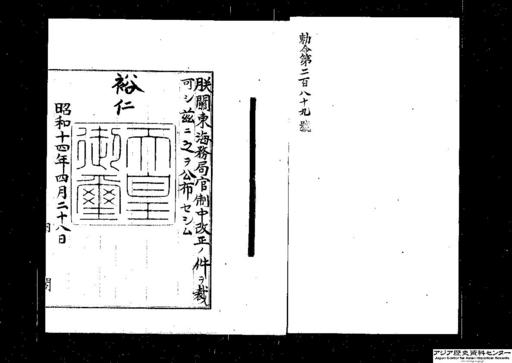 勅令第二百八十九號
朕關東海務局官制中改正ノ件ヲ裁
可シ茲ニ之ヲ公布セシム
裕仁
天皇御璽
昭和十四年四月二十八日
内閣
アジア歴史資料センター
Japan Center for Asian Historical Records